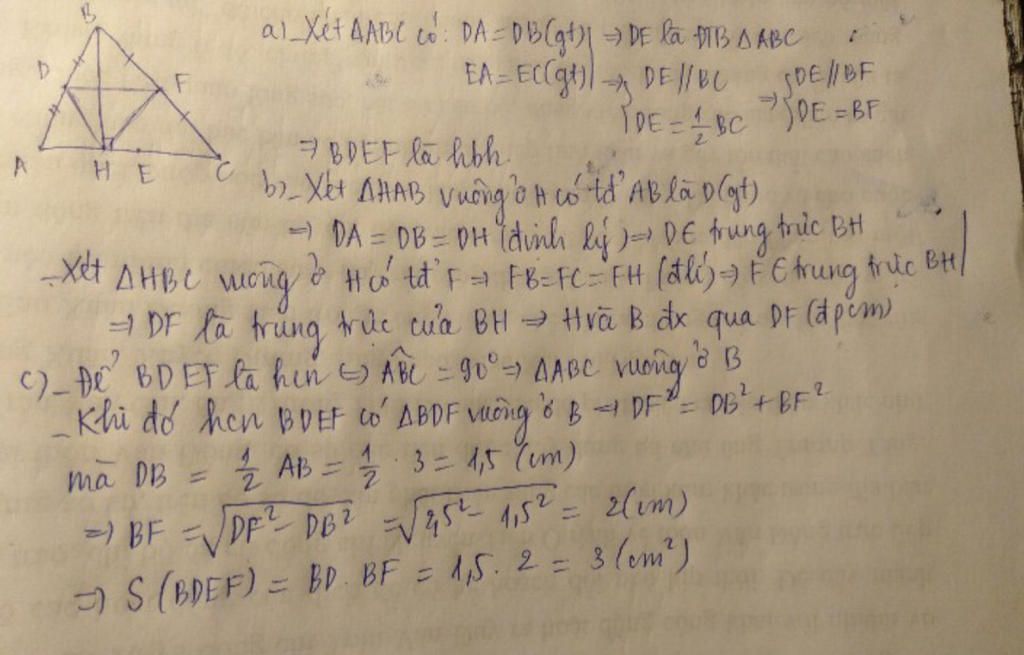 B
D
F
A
H
E
C
a)_Xét ΔABC có: DA = DB(gt) | ⇒ DE là ĐTB ΔABC
EA = EC(gt) | ⇒ { DE // BC ⇒ { DE // BF
DE = 1/2 BC DE = BF
⇒ BDEF là hbh
b)_ Xét ΔHAB vuông ở H có tđ' AB là D(gt)
⇒ DA = DB = DH (định lý) ⇒ D ∈ trung trực BH
_Xét ΔHBC vuông ở H có tđ' F ⇒ FB = FC = FH (đlí) ⇒ F ∈ trung trực BH |
⇒ DF là trung trực của BH ⇒ H và B đx qua DF (đpcm)
c)_ Để BDEF là hcn ⇔ ABC = 90° ⇒ ΔABC vuông ở B
_Khi đó hcn BDEF có ΔBDF vuông ở B ⇒ DF² = DB² + BF²
mà DB = 1/2 AB = 1/2 . 3 = 1,5 (cm)
⇒ BF = √(DF² - DB²) = √(2,5² - 1,5²) = 2 (cm)
⇒ S (BDEF) = BD . BF = 1,5 . 2 = 3 (cm²)